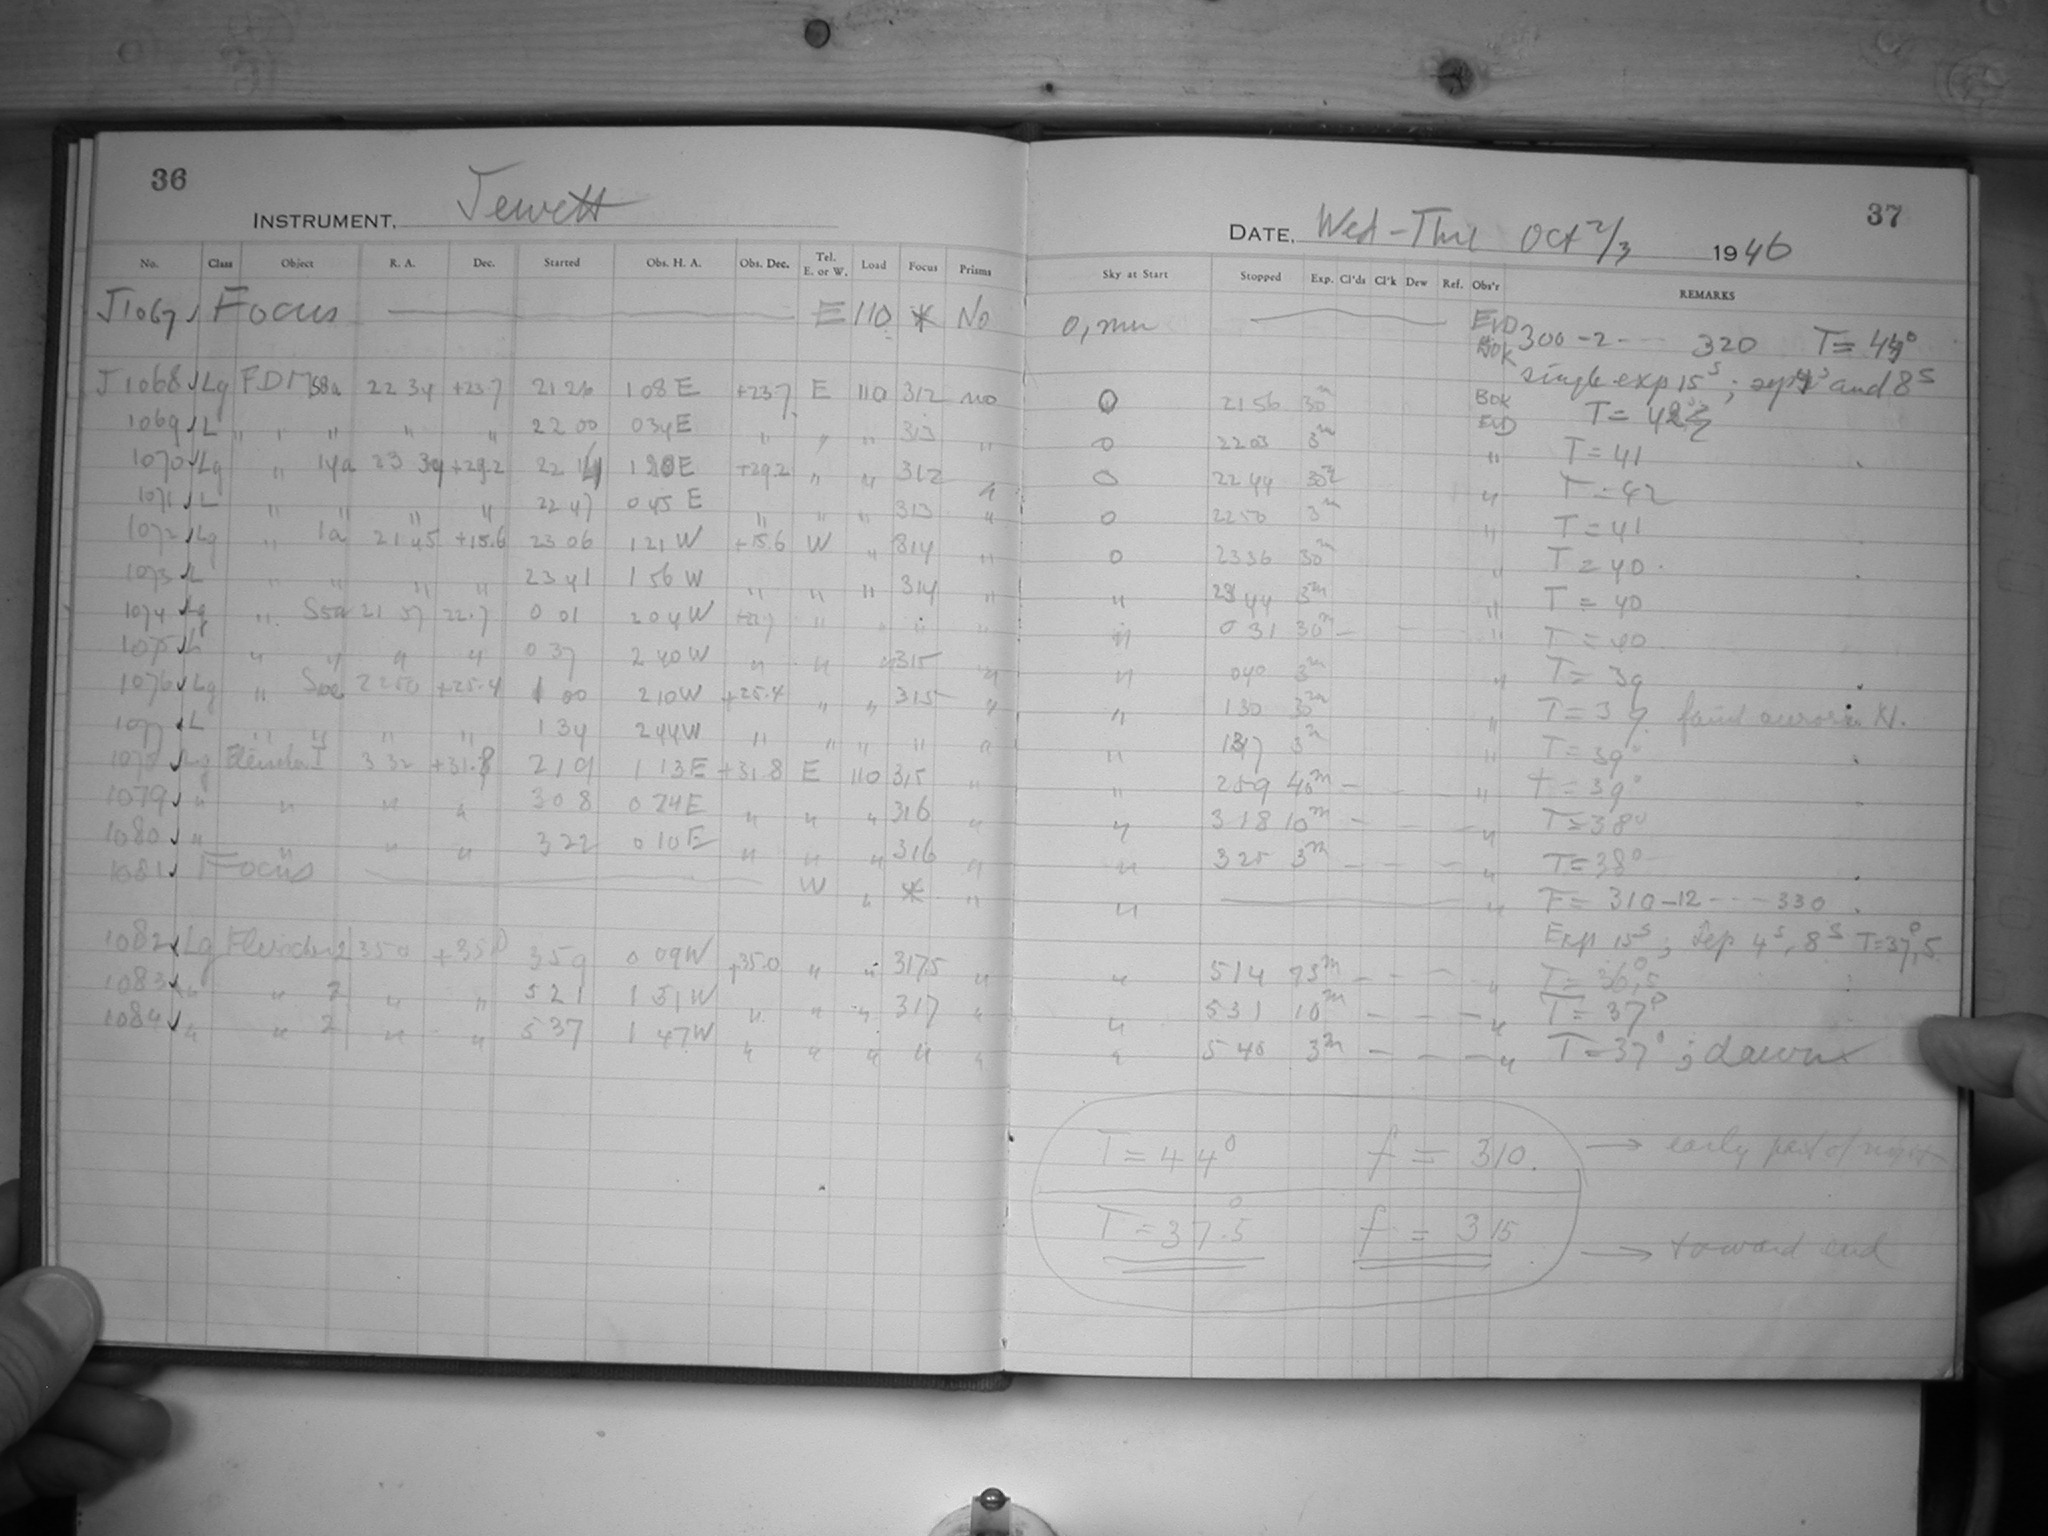 36
INSTRUMENT. Jewett
No. Class Object R. A. Dec. Started Obs. H. A. Obs. Dec. Tel. E. or W. Load Focus Prisms
J1067 Focus E 110 * No
J1068 Lg 22 34 +23.7 21 26 1 08 E +23.7 E 110 312 no
1069 L " " " " " 22 00 0 34 E " " " 313 "
1070 Lg " 14a 23 39 +29.2 22 14 E +29.2 " " 312 "
1071 L " " " " 22 47 0 45 E " " " 313 "
1072 Lg " 1a 21 45 +15.6 23 06 1 21 W +15.6 W " 314 "
1073 L " " " " 23 41 1 56 W " " " 314 "
1074 Lg " 21 57 22.7 0 01 2 04 W +22.7 " " " "
1075 L " " " " 0 37 2 40 W " " " 315 "
1076 Lg " 22 50 +25.4 1 00 2 10 W +25.4 " " 315 "
1077 L " " " " 1 34 2 44 W " " " " "
1078 Lg I 3 32 +31.8 2 19 1 13 E +31.8 E 110 315 "
1079 " " " " 3 08 0 24 E " " " 316 "
1080 " " " " 3 22 0 10 E " " " 316 "
1081 Focus W " * "
1082 Lg 2 3 50 +35.0 3 59 0 09 W +35.0 " " 317.5 "
1083 " " 2 " " 5 21 1 31 W " " " 317 "
1084 " " 2 " " 5 37 1 47 W " " " " "
37
DATE, Wed-Thu Oct 2/3 1946
Sky at Start Stopped Exp. Cl'ds Cl'k Dew Ref. Obs'r REMARKS
EVD
0, BOK 300 - 2 - - - 320 T = 44°
single exp 15s; sep 4s and 8s
0 21 56 30m BOK EVD T = 42
0 22 03 3m " T = 41
0 22 44 30m " T = 42
0 22 50 3m " T = 41
0 23 36 30m " T = 40
" 23 44 3m " T = 40
" 0 31 30m - - - " T = 40
" 0 40 3m " T = 39
" 1 30 30m " T = 39 faint aurora N.
" 1 37 3m " T = 39°
" 2 59 40m - - - " T = 39°
" 3 18 10m - - - " T = 38°
" 3 25 3m - - - " T = 38°
" " F = 310-12 - - - 330
Exp 15s; Sep 4s, 8s T = 37°.5
" 5 14 75m - - - " T = 36°.5
" 5 31 10m - - - " T = 37°
" 5 40 3m - - - " T = 37°; dawn
T = 44° f = 310. → early part of night
T = 37°.5 f = 315 → toward end